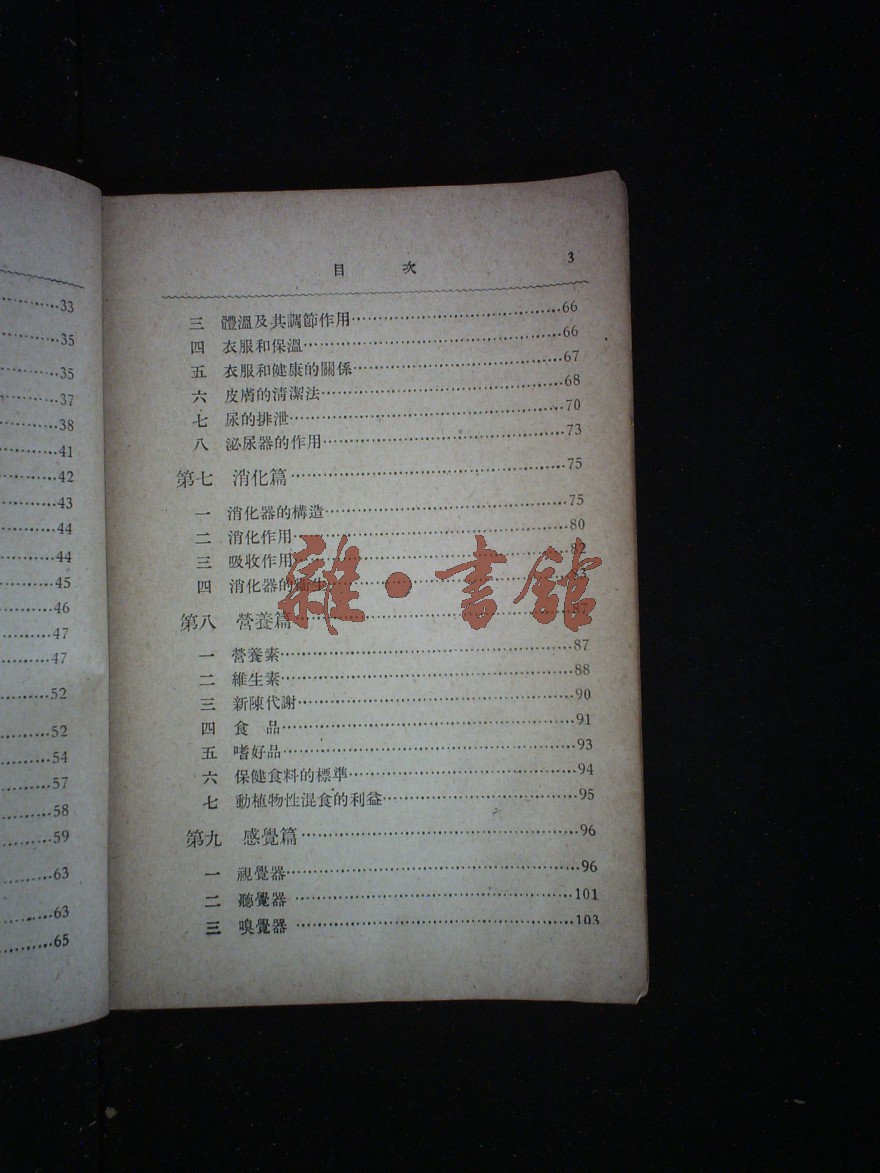 33
35
35
37
38
41
42
43
44
44
45
46
47
47
52
52
54
57
58
59
63
63
65
目 次 3
三 體溫及共調節作用…66
四 衣服和保溫…66
五 衣服和健康的關係…67
六 皮膚的清潔法…68
七 尿的排泄…70
八 泌尿器的作用…73
第七 消化篇…75
一 消化器的構造…75
二 消化作用…80
三 吸收作用…82
四 消化器的衞生…83
第八 營養篇…87
一 營養素…87
二 維生素…88
三 新陳代謝…90
四 食 品…91
五 嗜好品…93
六 保健食料的標準…94
七 動植物性混食的利益…95
第九 感覺篇…96
一 視覺器…96
二 聽覺器…101
三 嗅覺器…103
雜·書館